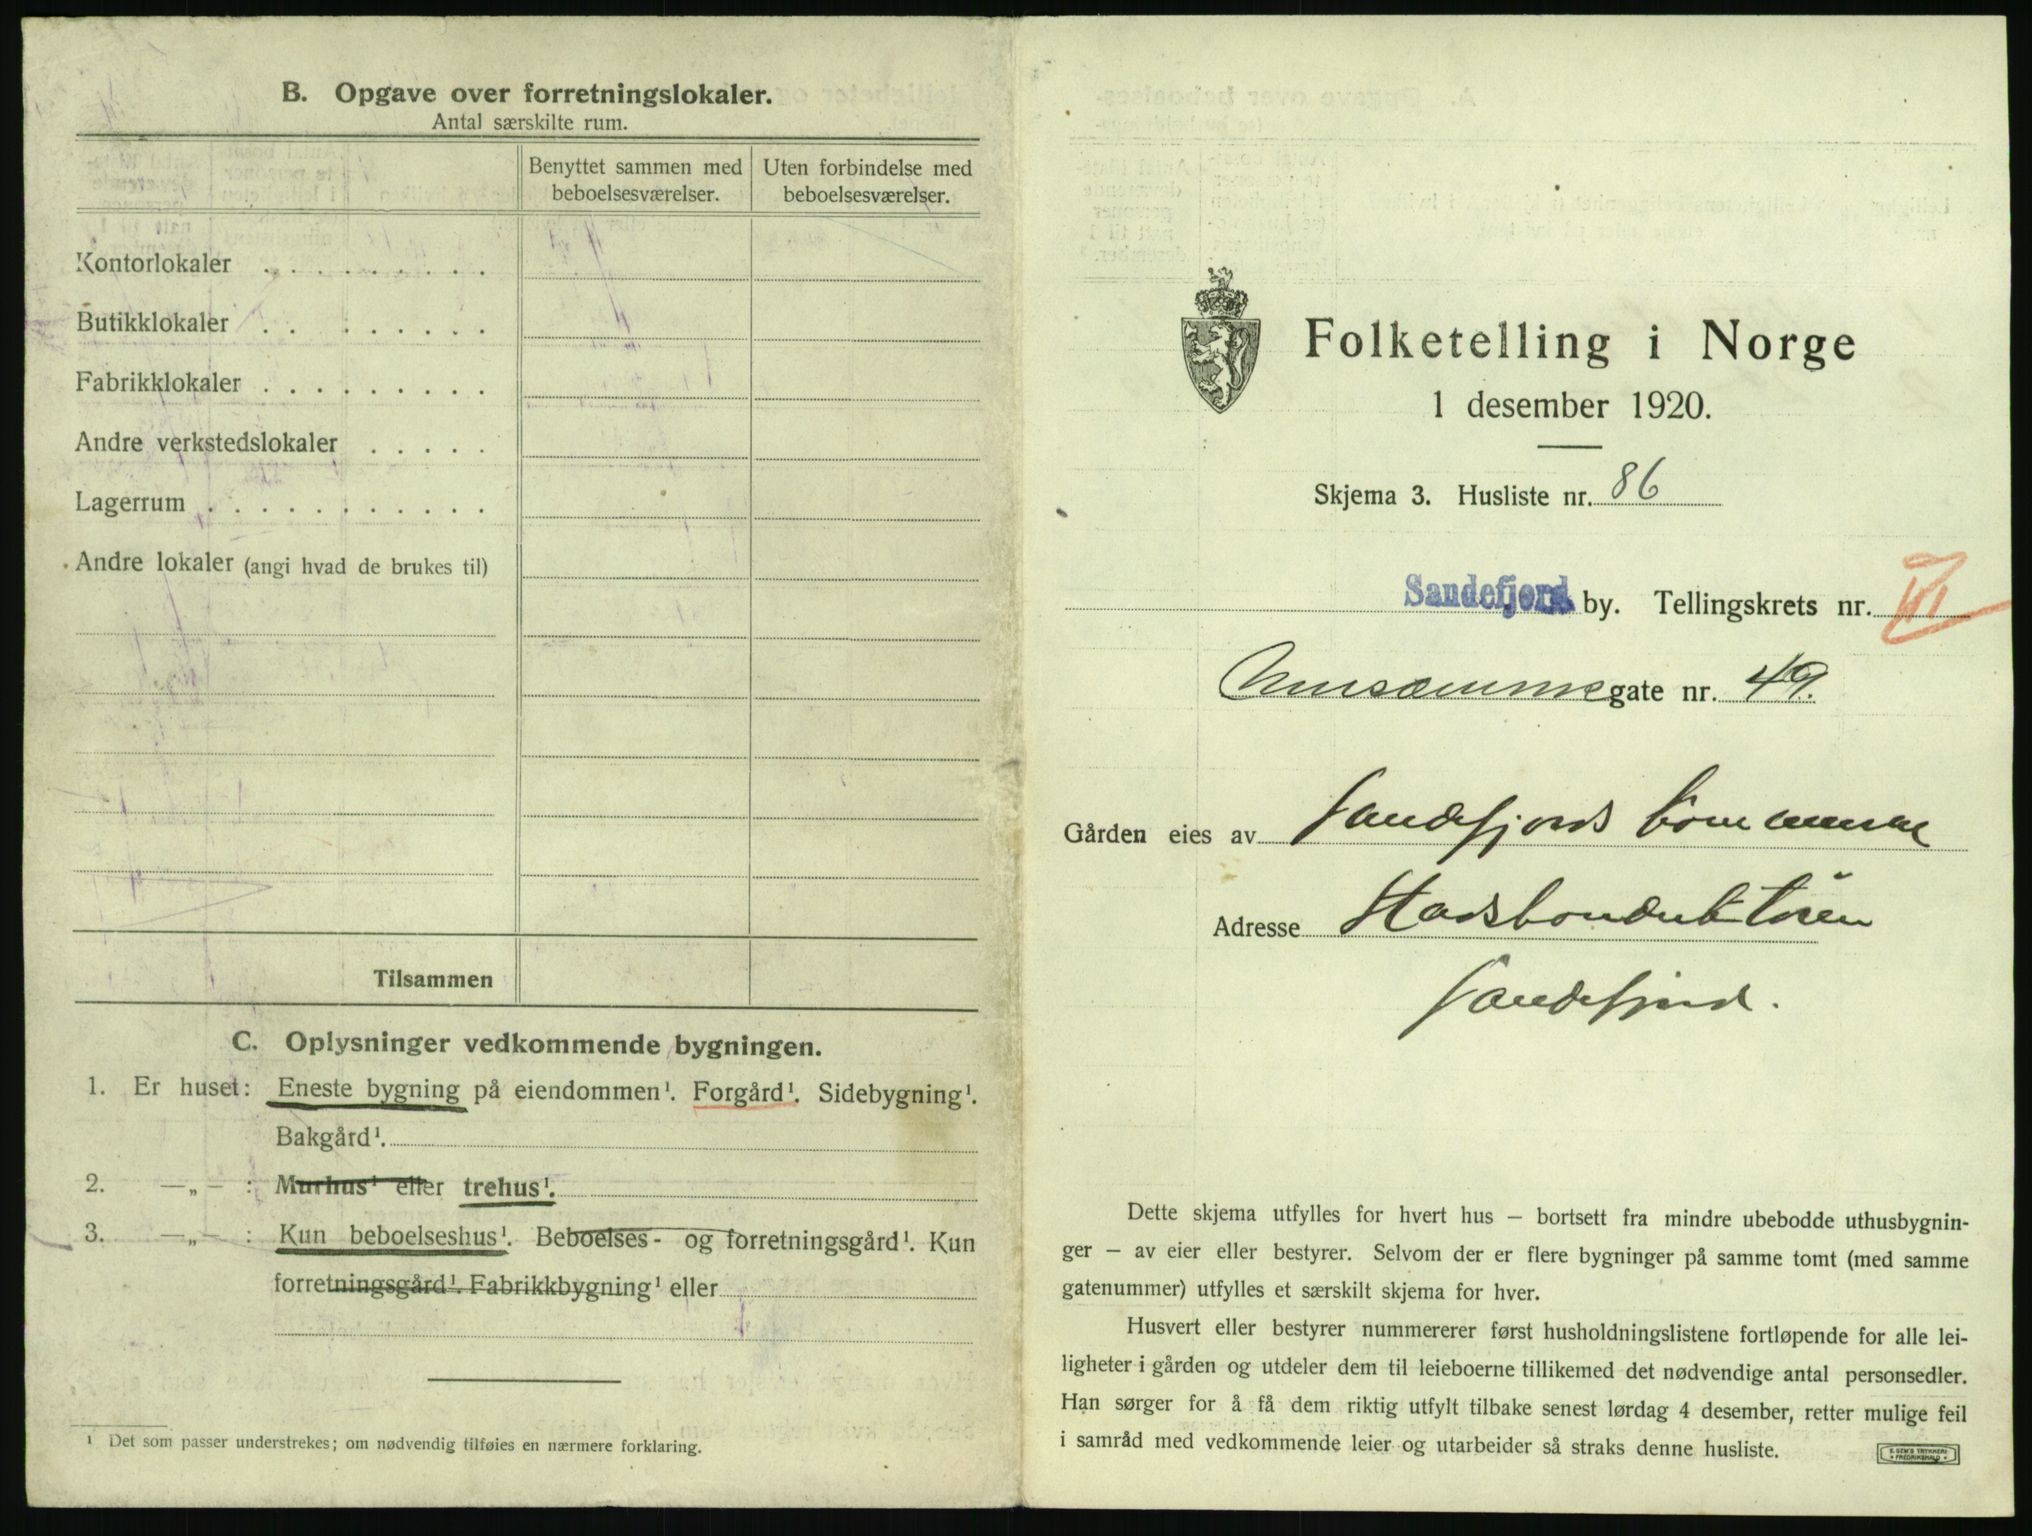 B. Opgave over forretningslokaler.
Antal særskilte rum.
Benyttet sammen med beboelsesværelser.
Uten forbindelse med beboelsesværelser.
Kontorlokaler . . . . . . . . .
Butikklokaler . . . . . . . .
Fabrikklokaler . . . . . . . . .
Andre verkstedslokaler . . . . .
Lagerrum . . . . . . . . . . .
Andre lokaler (angi hvad de brukes til)
Tilsammen
C. Oplysninger vedkommende bygningen.
1. Er huset: Eneste bygning på eiendommen¹. Forgård¹. Sidebygning¹.
Bakgård¹.
2. —„— : Murhus¹ eller trehus¹.
3. —„— : Kun beboelseshus¹. Beboelses- og forretningsgård¹. Kun
forretningsgård¹. Fabrikkbygning¹ eller
¹ Det som passer understrekes; om nødvendig tilføies en nærmere forklaring.
Folketelling i Norge
1 desember 1920.
Skjema 3. Husliste nr. 86
Sandefjord by. Tellingskrets nr. VI
gate nr. 49.
Gården eies av Sandefjords kommune
Adresse Stadskonduktören
Sandefjord.
Dette skjema utfylles for hvert hus – bortsett fra mindre ubebodde uthusbygnin-
ger – av eier eller bestyrer. Selvom der er flere bygninger på samme tomt (med samme
gatenummer) utfylles et særskilt skjema for hver.
Husvert eller bestyrer nummererer først husholdningslistene fortløpende for alle lei-
ligheter i gården og utdeler dem til leieboerne tillikemed det nødvendige antal personsedler.
Han sørger for å få dem riktig utfylt tilbake senest lørdag 4 desember, retter mulige feil
i samråd med vedkommende leier og utarbeider så straks denne husliste.
E. SEM'S TRYKKERI
FREDRIKSHALD